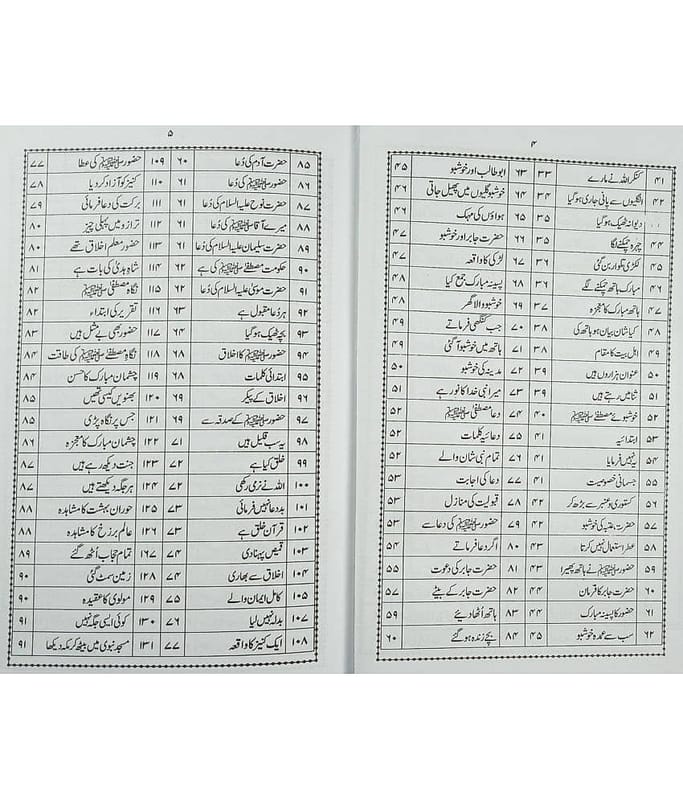 ۴
۴۱ کنکر اللہ نے مارے ۳۳ ۶۳ ابوطالب اور خوشبو ۴۵
۴۲ انگلیوں سے پانی جاری ہوگیا ۳۴ ۶۴ خوشبو گلیوں میں پھیل جاتی ۴۶
دیوانہ ٹھیک ہوگیا ۳۵ ۶۵ ہواؤں کی مہک ۴۶
۴۴ چہرہ چمکنے لگا ۳۵ ۶۶ حضرت جابر اور خوشبو ۴۷
۴۵ لکڑی تلوار بن گئی ۳۶ ۶۷ لڑکی کا واقعہ ۴۷
۴۶ مبارک ہاتھ چمکنے لگے ۳۶ ۶۸ پسینہ مبارک جمع کیا ۴۸
۴۷ ہاتھ مبارک کا معجزہ ۳۷ ۶۹ خوشبو والا گھر ۴۸
۴۸ کیا شان بیان ہو ہاتھ کی ۳۸ ۷۰ جب کنگھی فرماتے ۴۹
۴۹ اہل بیت کا مقام ۳۸ ۷۱ ہاتھ میں خوشبو آ گئی ۴۹
۵۰ عنوان ہزاروں ہیں ۳۹ ۷۲ مدینہ کی خوشبو ۵۰
۵۱ ثنا میں رہتے ہیں ۳۹ ۷۳ میرا نبی خدا کا نور ہے ۵۱
۵۲ خوشبوئے مصطفےٰ ﷺ ۴۰ ۷۴ دعا مصطفیٰ ﷺ ۵۲
۵۳ ابتدائیہ ۴۱ ۷۵ دعائیہ کلمات ۵۲
۵۴ یہ نہیں فرمایا ۴۱ ۷۶ تمام نبی شان والے ۵۲
۵۵ جسمانی خصوصیت ۴۱ ۷۷ دعا کی اجابت ۵۳
۵۶ کستوری و عنبر سے بڑھ کر ۴۲ ۷۸ قبولیت کی منازل ۵۳
۵۷ حضرت عتبہ کی خوشبو ۴۲ ۷۹ حضور ﷺ کی دعا سے ۵۳
۵۸ عطر استعمال نہیں کرتا ۴۳ ۸۰ اگر دعا فرماتے ۵۴
۵۹ حضور ﷺ نے ہاتھ پھیرا ۴۳ ۸۱ حضرت جابر کی دعوت ۵۵
۶۰ حضرت جابر کا فرمان ۴۴ ۸۲ حضرت جابر کے بیٹے ۵۷
۶۱ حضور کا پسینہ مبارک ۴۴ ۸۳ ہاتھ اُٹھا دیئے ۵۹
۶۲ سب سے عمدہ خوشبو ۴۵ ۸۴ بچے زندہ ہو گئے ۶۰
۵
۸۵ حضرت آدم کی دُعا ۶۰ ۱۰۹ حضور ﷺ کی عطا ۷۷
۸۶ حضور ﷺ کی دُعا ۶۱ ۱۱۰ کنیز کو آزاد کر دیا ۷۸
۸۷ حضرت نوح علیہ السلام کی دُعا ۶۱ ۱۱۱ برکت کی دعا فرمائی ۷۹
۸۸ میرے آقا ﷺ کی دُعا ۶۱ ۱۱۲ ترازو میں پہلی چیز ۸۰
۸۹ حضرت سلیمان علیہ السلام کی دُعا ۶۱ ۱۱۳ حضور معلم اخلاق تھے ۸۰
۹۰ حکومت مصطفےٰ ﷺ کی ہے ۶۲ ۱۱۴ شاہ ہدیٰ کی بات ہے ۸۱
۹۱ حضرت موسیٰ علیہ السلام کی دُعا ۶۲ ۱۱۵ نگاہ مصطفیٰ ﷺ ۸۲
۹۲ ہر دعا مقبول ہے ۶۳ ۱۱۶ تقریر کی ابتداء ۸۲
۹۳ بچہ ٹھیک ہوگیا ۶۴ ۱۱۷ حضور بھی بے مثل ہیں ۸۳
۹۴ حضور ﷺ کا اخلاق ۶۸ ۱۱۸ نگاہ مصطفےٰ ﷺ کی طاقت ۸۴
۹۵ ابتدائی کلمات ۶۸ ۱۱۹ چشمان مبارک کا حسن ۸۴
۹۶ اخلاق کے پیکر ۶۹ ۱۲۰ بھنویں کیسی تھیں ۸۵
۹۷ حضور ﷺ کے صدقہ سے ۶۹ ۱۲۱ جس پر نگاہ پڑی ۸۵
۹۸ یہ سب قلیل ہیں ۷۱ ۱۲۲ چشمان مبارک کا معجزہ ۸۶
۹۹ خلق کیا ہے ۷۲ ۱۲۳ جنت دیکھ رہے ہیں ۸۷
۱۰۰ اللہ نے نرمی رکھی ۷۲ ۱۲۴ ہر جگہ دیکھتے ہیں ۸۷
۱۰۱ بددعا نہیں فرمائی ۷۳ ۱۲۵ حوران بہشت کا مشاہدہ ۸۸
۱۰۲ قرآن خلق ہے ۷۳ ۱۲۶ عالم برزخ کا مشاہدہ ۸۸
۱۰۳ قمیض پہنا دی ۷۴ ۱۶۷ تمام حجاب اُٹھ گئے ۸۹
۱۰۴ اخلاق سے بھاری ۷۴ ۱۲۸ زمین سمٹ گئی ۹۰
۱۰۵ کامل ایمان والے ۷۵ ۱۲۹ مولوی کا عقیدہ ۹۰
۱۰۷ بدلہ نہیں لیا ۷۶ ۱۳۰ کوئی ایسی جگہ نہیں ۹۱
۱۰۸ ایک کنیز کا واقعہ ۷۷ ۱۳۱ مسجد نبوی میں بیٹھ کر مکہ دیکھا ۹۱